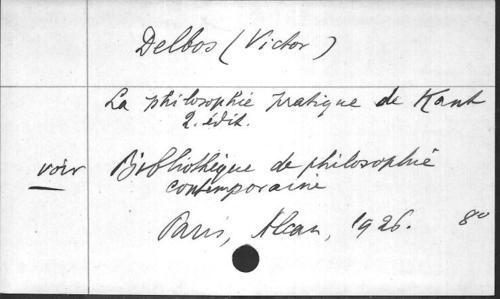 Delbos (Victor)
La philosophie pratique de Kant
2. édit.
voir Bibliothèque de philosophie
contemporaine
Paris, Alcan, 1926. 8º